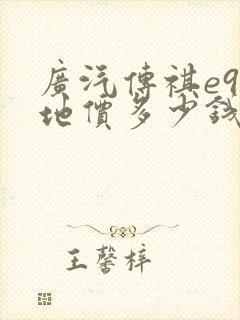 廣汽傳祺e9
地價多少錢
王馨梓